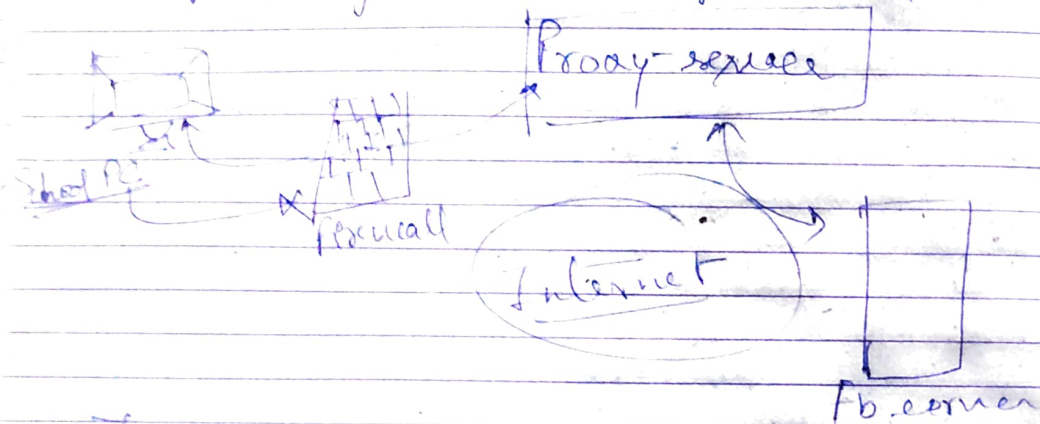 Proxy-server
School PC
Firewall
Internet
Fb.